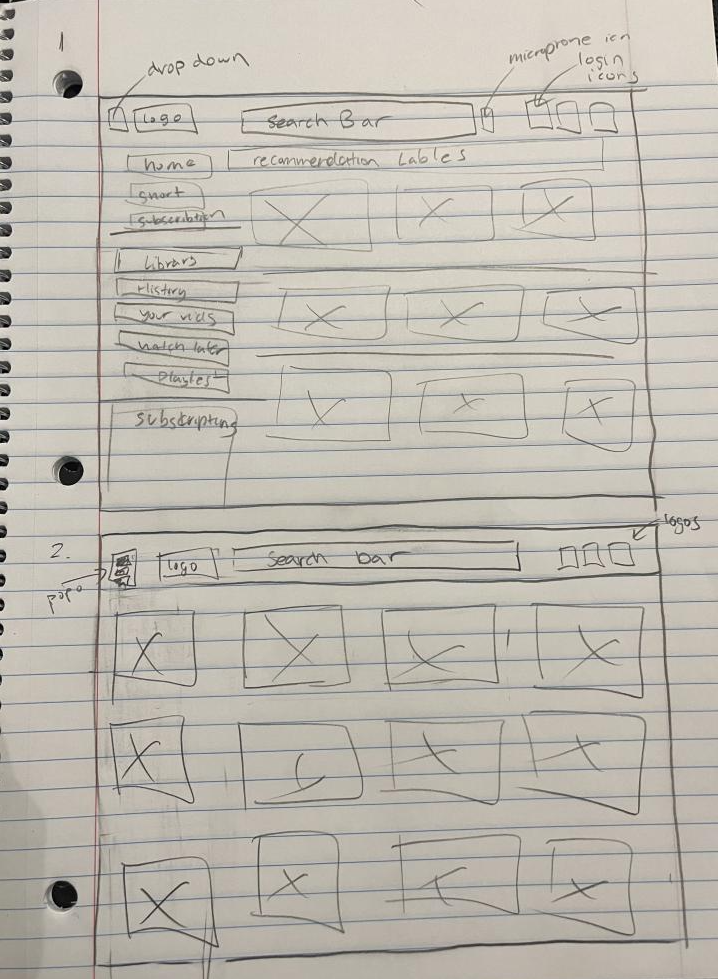 1
drop down
microphone icn
login
icons
Logo
Search Bar
home
recommendation Lables
short
subscribtion
Library
History
your vids
watch later
Playlest
Subskripting
2.
logos
Logo
Search bar